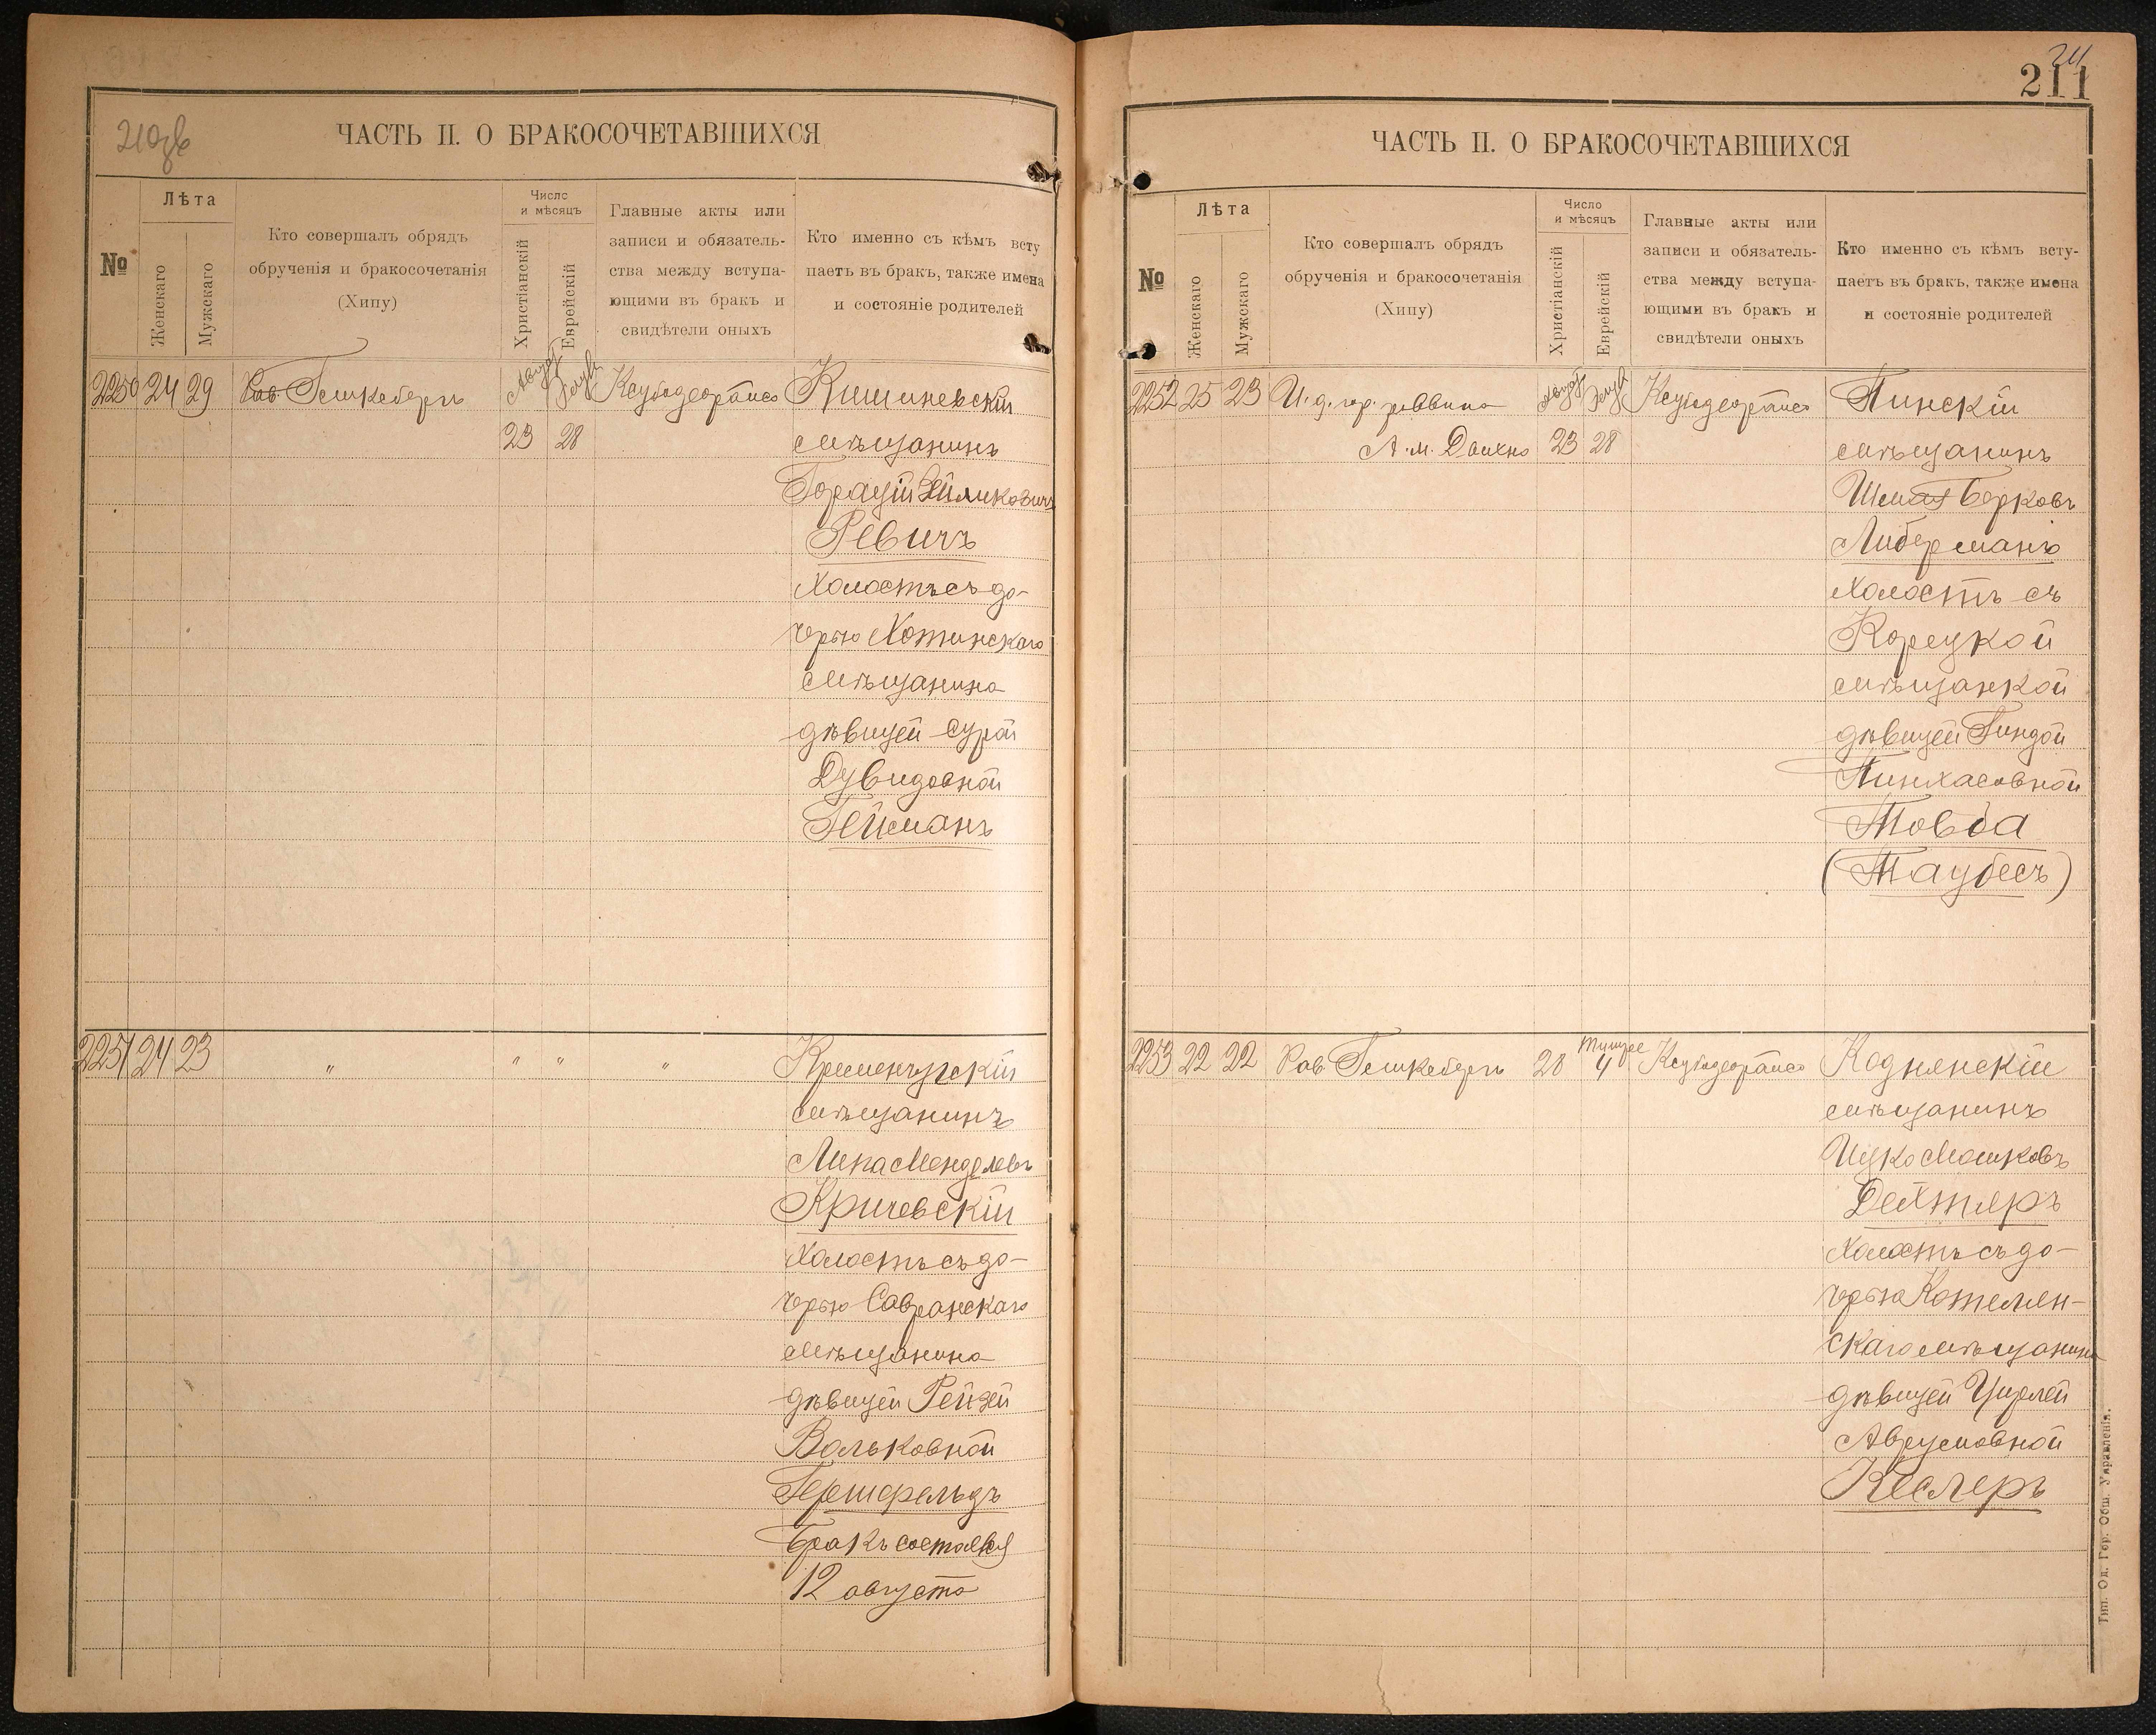 210зв
ЧАСТЬ II. О БРАКОСОЧЕТАВШИХСЯ
№
Лѣта
Женскаго
Мужскаго
Кто совершалъ обрядъ
обрученія и бракосочетанія
(Хипу)
Число
и мѣсяцъ
Христіанскій
Еврейскій
Главные акты или
записи и обязатель-
ства между вступа-
ющими въ бракъ и
свидѣтели оныхъ
Кто именно съ кѣмъ всту
паетъ въ бракъ, также имена
и состояніе родителей
2250 24 29 Рав. Гешкебергъ 23 28 Кишиневскій
мѣщанинъ
Горацій Зейликовичъ
Ревичъ
холостъ съ до-
черью Хотинскаго
мѣщанина
дѣвицей Сурой
Дувидовной
Гейманъ
2251 24 23 " " " " Кременчугскій
мѣщанинъ
Липа Менделевъ
Кричевскій
холостъ съ до-
черью Савранскаго
мѣщанина
дѣвицей Рейзей
Вольковной
Гершфельдъ
Бракъ состоялся
12 августа
211
ЧАСТЬ II. О БРАКОСОЧЕТАВШИХСЯ
№
Лѣта
Женскаго
Мужскаго
Кто совершалъ обрядъ
обрученія и бракосочетанія
(Хипу)
Число
и мѣсяцъ
Христіанскій
Еврейскій
Главные акты или
записи и обязатель-
ства между вступа-
ющими въ бракъ и
свидѣтели оныхъ
Кто именно съ кѣмъ всту-
паетъ въ бракъ, также имена
и состояніе родителей
2252 25 23 И. д. гор. раввина Пинскій
А. М. Дыхно 23 28 мѣщанинъ
Берковъ
Либерманъ
холостъ съ
Корецкой
мѣщанкой
дѣвицей Гиндой
Пинхасовной
Товба
(Таубесъ)
2253 22 22 Рав. Гешкебергъ 28 Тишре 4 Коднянскій
мѣщанинъ
Ицко Мошковъ
Дехтяръ
холостъ съ до-
черью Котельен-
скаго мѣщанина
дѣвицей Цирлей
Аврумовной
Кеслеръ
Тип. Од. Гор. Общ. Управленія.